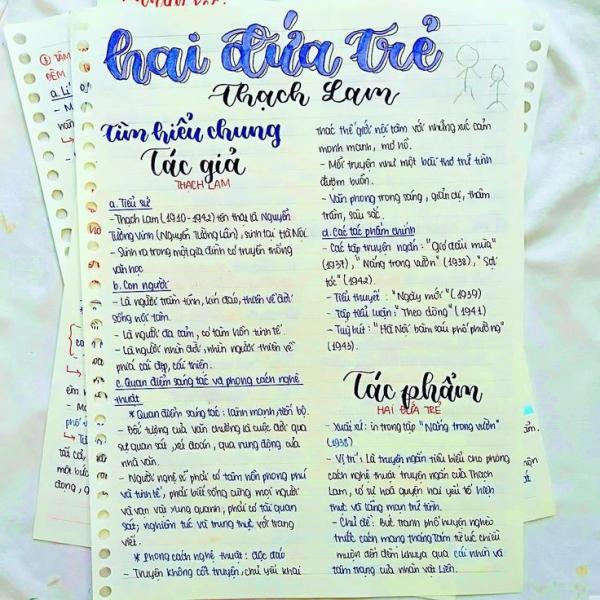 hai đứa trẻ
Thạch Lam
Tìm hiểu chung
Tác giả
THẠCH LAM
a. Tiểu sử
- Thạch Lam (1910-1942) tên thật là Nguyễn
Tường Vinh (Nguyễn Tường Lân), sinh tại Hà Nội.
- Sinh ra trong một gia đình có truyền thống
văn học
b. Con người
- Là người trầm tĩnh, kín đáo, thiên về đời
sống nội tâm.
- Là người đa cảm, có tâm hồn tinh tế.
- Là người nhìn đời, nhìn người thiên về
phía cái đẹp, cái thiện.
c. Quan điểm sáng tác và phong cách nghệ
thuật
* Quan điểm sáng tác: lành mạnh, tiến bộ.
- Đối tượng của văn chương là cuộc đời qua
sự quan sát, xét đoán, qua rung động của
nhà văn.
- Người nghệ sĩ phải có tâm hồn phong phú
và tinh tế, phải biết sống cùng mọi người
và vạn vật xung quanh, phải có tài quan
sát; nghiêm túc và trung thực với trang
viết.
* Phong cách nghệ thuật: độc đáo
- Truyện không cốt truyện, chủ yếu khai
thác thế giới nội tâm với những xúc cảm
mong manh, mơ hồ.
- Mỗi truyện như một bài thơ trữ tình
đượm buồn.
- Văn phong trong sáng, giản dị, thâm
trầm, sâu sắc.
d. Các tác phẩm chính
- Các tập truyện ngắn: "Gió đầu mùa"
(1937), "Nắng trong vườn" (1938), "Sợi
tóc" (1942).
- Tiểu thuyết: "Ngày mới" (1939)
- Tập tiểu luận: "Theo dòng" (1941)
- Tuỳ bút: "Hà Nội băm sáu phố phường"
(1943).
Tác phẩm
HAI ĐỨA TRẺ
- Xuất xứ: in trong tập "Nắng trong vườn"
(1938)
- Vị trí: Là truyện ngắn tiêu biểu cho phong
cách nghệ thuật truyện ngắn của Thạch
Lam, có sự hoà quyện hai yếu tố hiện
thực và lãng mạn trữ tình.
- Chủ đề: Bức tranh phố huyện nghèo
trước cách mạng tháng Tám từ lúc chiều
muộn đến đêm khuya qua cái nhìn và
tâm trạng của nhân vật Liên.